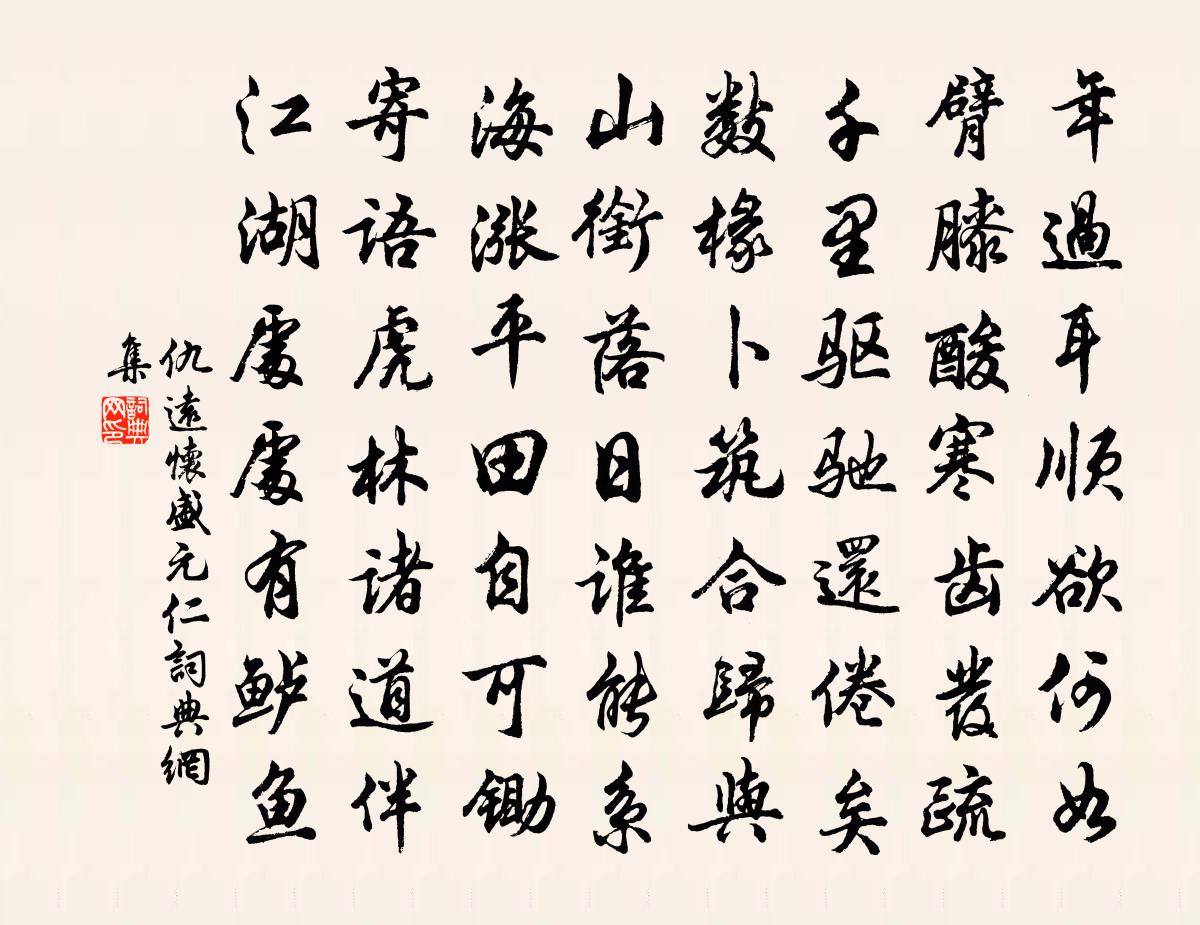 年過耳顺欲何如
臂膝酸寒齿發疏
千里驱驰還倦矣
数椽卜筑合歸與
山銜落日谁能系
海漲平田自可鋤
寄語虎林诸道伴
江湖處處有鲈鱼
仇遠懷盛元仁詞典網
集
詞典
网印